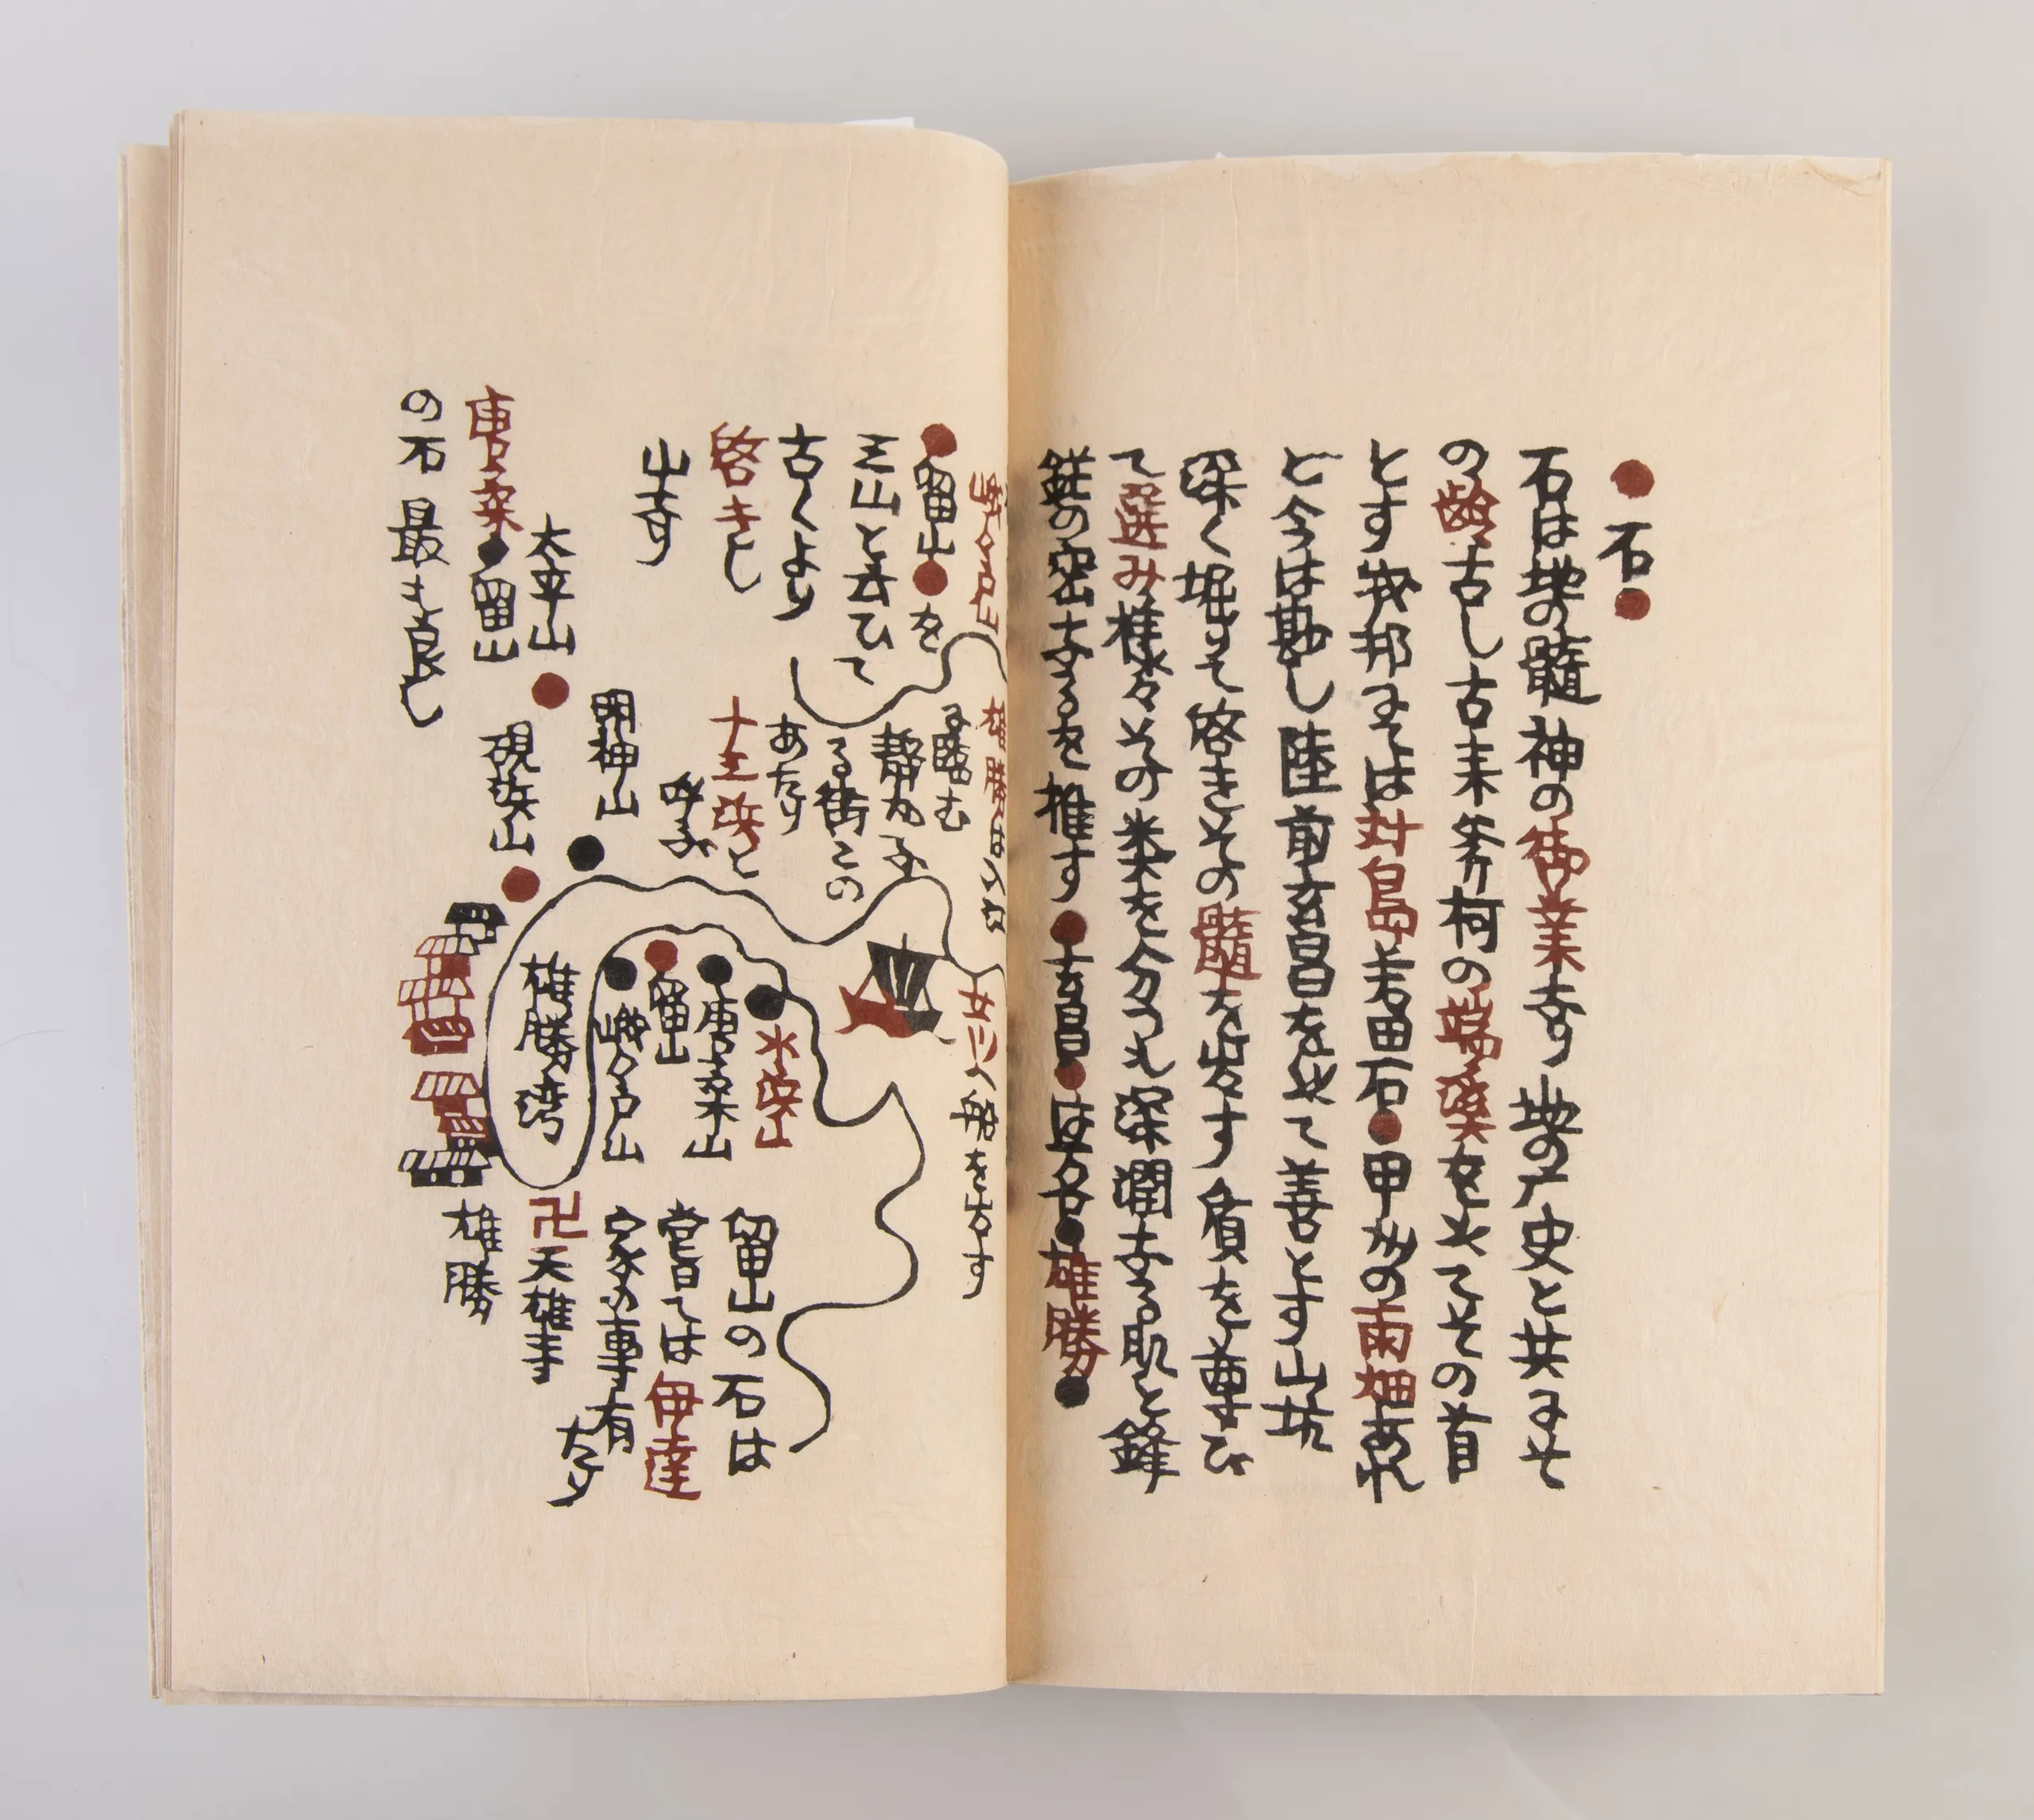 ●石●
石は地の髄神の御業なり地の厂史と共にそ
の齢古し古来斧柯の端渓を以てその首
とす我邦にては対島若田石●甲州の雨畑あれ
ど今は尠し陸前玄昌を以て善とす山坑
深く堀りて啓きその髄を出す質を尊び
て選み種々その を分つも深潤なる肌と鋒
鋩の密なるを推す●玄昌●は名●雄勝●
●留山●を
三山と云ひて
古くより
啓きし
山なり
雄勝は入江
に臨む
静かな
る街この
あたり
十三浜と
呼ぶ
女川へ船を出す
太平山
唐桑●留山
の石最も良し
明神山
硯浜山
水浜山
唐桑山
留山
峨々戸山
雄勝湾
留山の石は
嘗ては伊達
家の専有
なり
卍天雄寺
雄勝